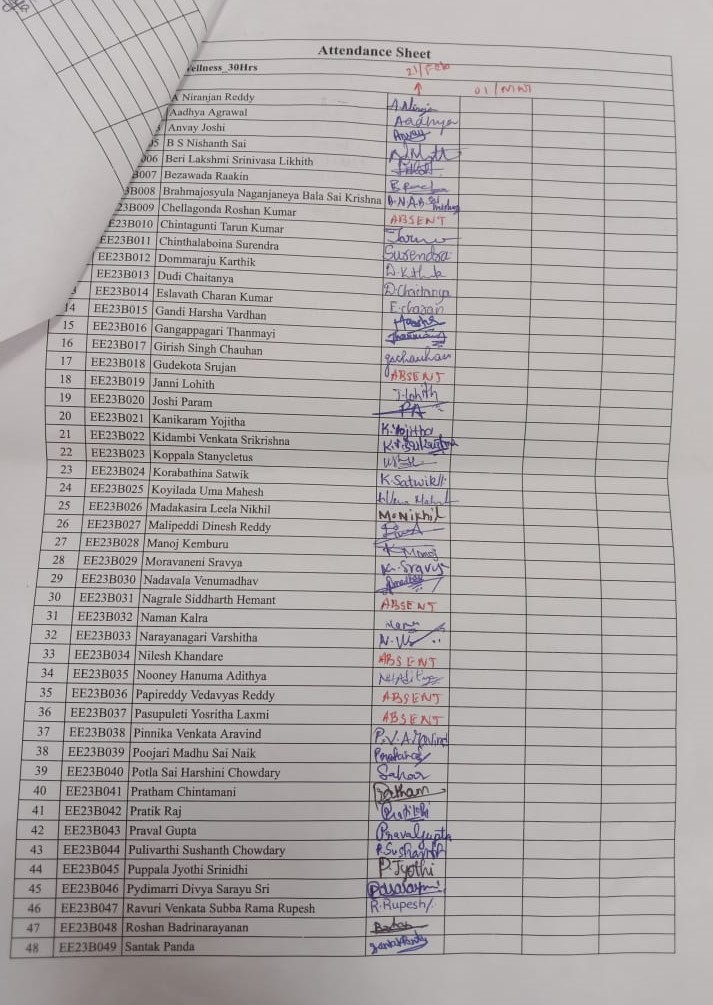 Attendance Sheet
ellness_30Hrs
21/Feb
01/MAR
A Niranjan Reddy
Aadhya Agrawal Aadhya
Anvay Joshi Anvay
05 B S Nishanth Sai
006 Beri Lakshmi Srinivasa Likhith
B007 Bezawada Raakin
3B008 Brahmajosyula Naganjaneya Bala Sai Krishna
23B009 Chellagonda Roshan Kumar ABSENT
E23B010 Chintagunti Tarun Kumar Tarun
EE23B011 Chinthalaboina Surendra Surendra
EE23B012 Dommaraju Karthik
EE23B013 Dudi Chaitanya D.Chaitanya
EE23B014 Eslavath Charan Kumar E.charan
14 EE23B015 Gandi Harsha Vardhan Harsha
15 EE23B016 Gangappagari Thanmayi
16 EE23B017 Girish Singh Chauhan gschauhan
17 EE23B018 Gudekota Srujan ABSENT
18 EE23B019 Janni Lohith J.Lohith
19 EE23B020 Joshi Param PA
20 EE23B021 Kanikaram Yojitha K.Yojitha
21 EE23B022 Kidambi Venkata Srikrishna
22 EE23B023 Koppala Stanycletus
23 EE23B024 Korabathina Satwik K.Satwik
24 EE23B025 Koyilada Uma Mahesh
25 EE23B026 Madakasira Leela Nikhil M.Nikhil
26 EE23B027 Malipeddi Dinesh Reddy
27 EE23B028 Manoj Kemburu K Manoj
28 EE23B029 Moravaneni Sravya M.Sravya
29 EE23B030 Nadavala Venumadhav
30 EE23B031 Nagrale Siddharth Hemant ABSENT
31 EE23B032 Naman Kalra
32 EE23B033 Narayanagari Varshitha
33 EE23B034 Nilesh Khandare ABSENT
34 EE23B035 Nooney Hanuma Adithya
35 EE23B036 Papireddy Vedavyas Reddy ABSENT
36 EE23B037 Pasupuleti Yosritha Laxmi ABSENT
37 EE23B038 Pinnika Venkata Aravind P.V.Aravind
38 EE23B039 Poojari Madhu Sai Naik
39 EE23B040 Potla Sai Harshini Chowdary
40 EE23B041 Pratham Chintamani Pratham
41 EE23B042 Pratik Raj
42 EE23B043 Praval Gupta Praval Gupta
43 EE23B044 Pulivarthi Sushanth Chowdary P.Sushanth
44 EE23B045 Puppala Jyothi Srinidhi P.Jyothi
45 EE23B046 Pydimarri Divya Sarayu Sri
46 EE23B047 Ravuri Venkata Subba Rama Rupesh R.Rupesh
47 EE23B048 Roshan Badrinarayanan
48 EE23B049 Santak Panda Santak Panda